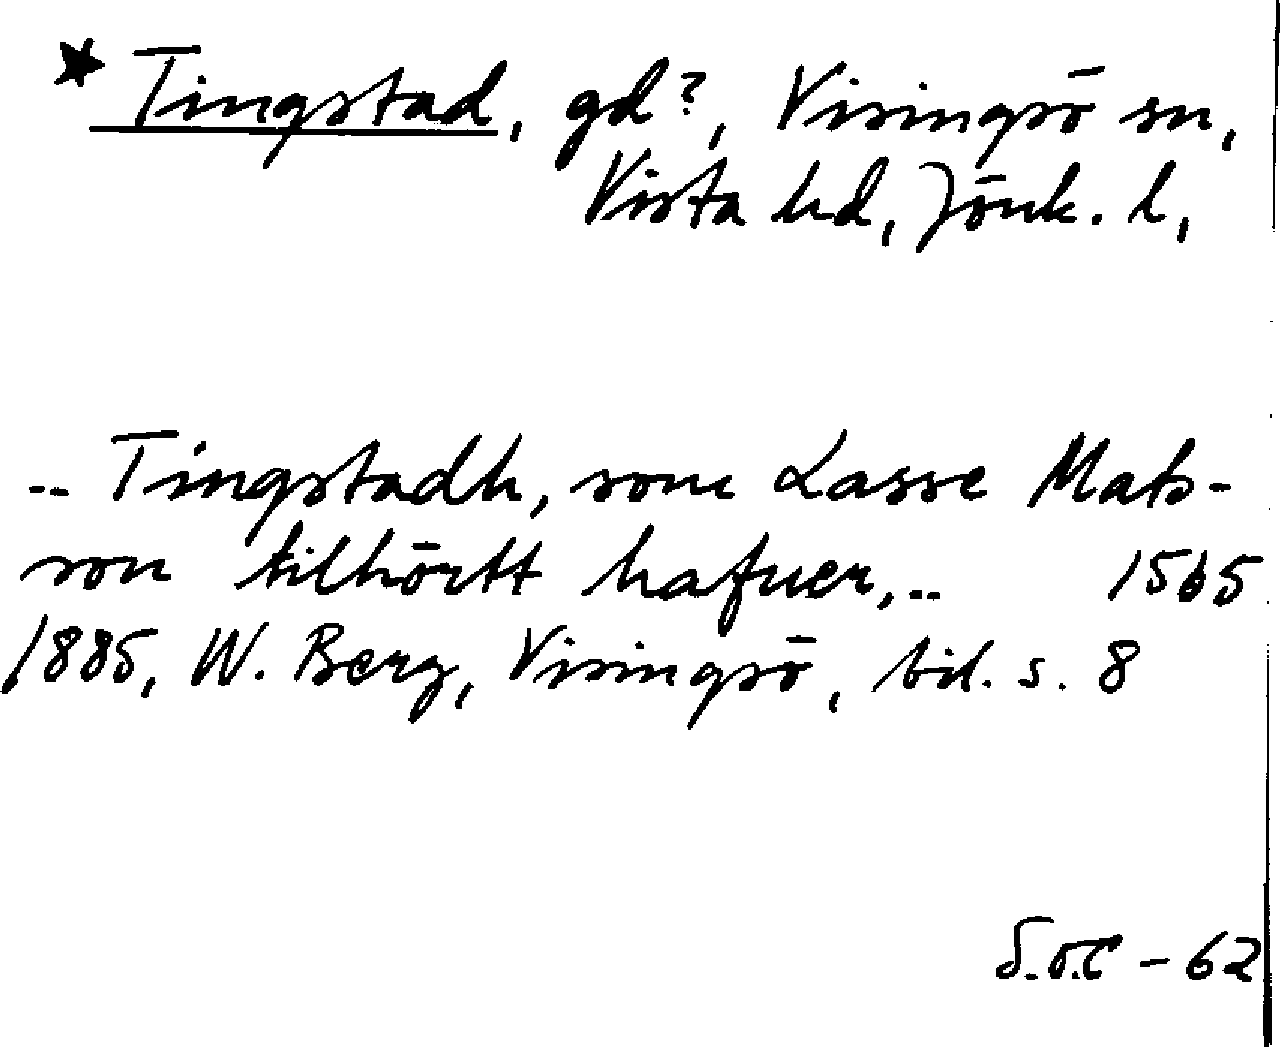 * Tingstad, gd?, Visingsö sn,
Vista hd, Jönk. l,
.. Tingstadh, som Lasse Mats-
son tilhörtt hafuer,.. 1565
1885, W. Berg, Visingsö, bil. s. 8
S.O.C - 62